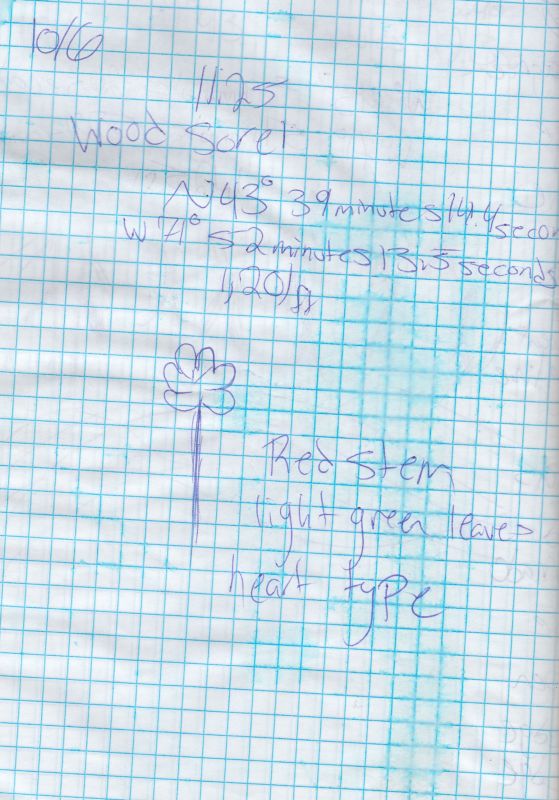 10/6
11:25
Wood Sorel
N 43° 39 minutes 14.4 secon
W 71° 52 minutes 13.5 seconds
Red stem
light green leaves
heart type